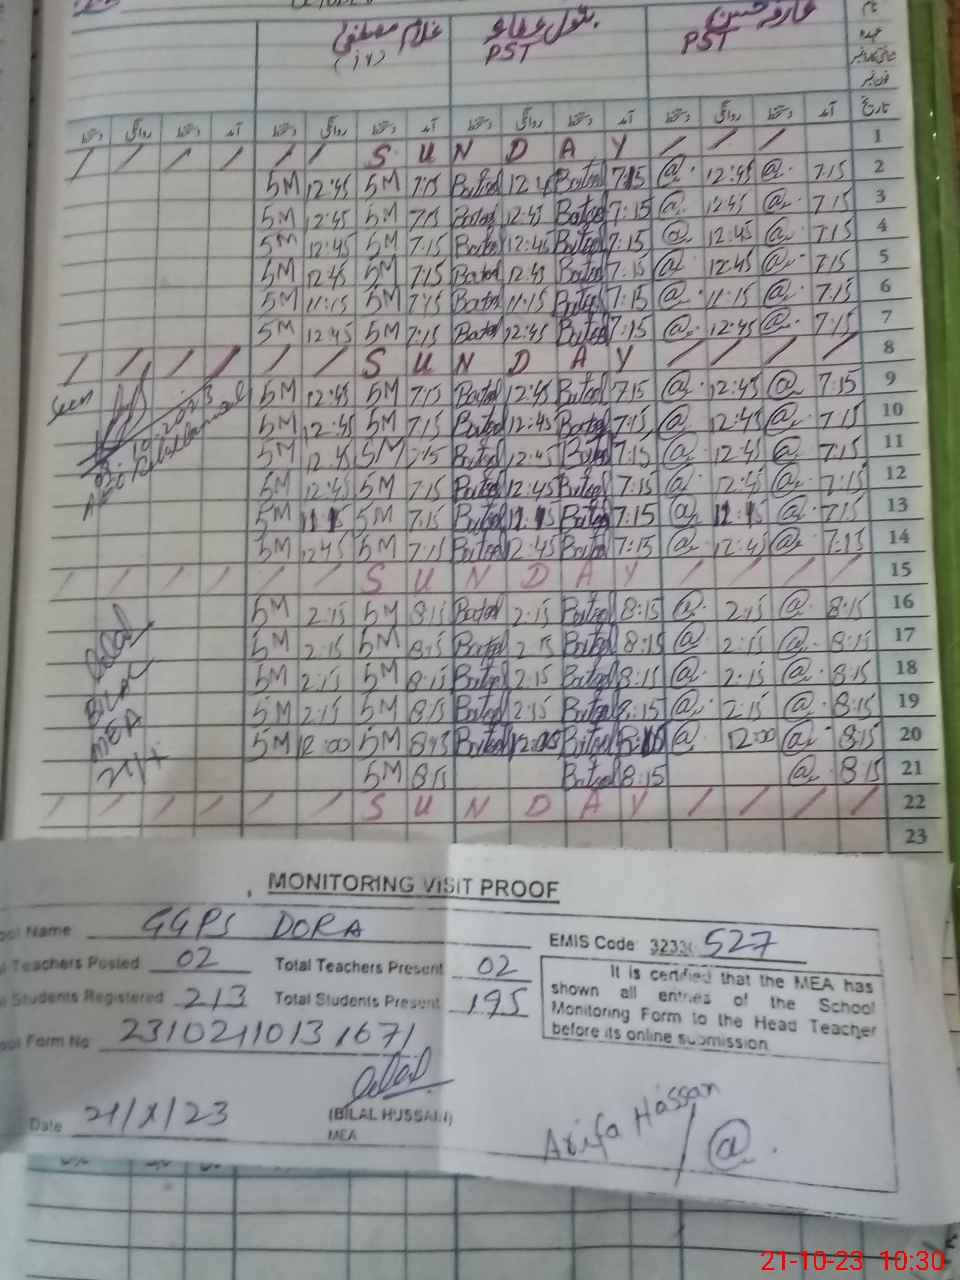 غلام مصطفیٰ بتول عطاء عارفہ حسن
PST PST
تاریخ آمد دستخط روانگی دستخط آمد دستخط روانگی دستخط آمد دستخط روانگی دستخط آمد دستخط روانگی دستخط
/ / / / / / S U N D A Y / / / 1
5M 12:45 5M 7:15 Batool Batool 7:15 @ 12:45 @ 7:15 2
5M 12:45 5M 7:15 Batool 12:45 Batool 7:15 @ 12:45 @ 7:15 3
5M 12:45 5M 7:15 Batool 12:45 Batool 7:15 @ 12:45 @ 7:15 4
5M 12:45 5M 7:15 Batool 12:45 Batool 7:15 @ 12:45 @ 7:15 5
5M 11:15 5M 7:15 Batool 11:15 Batool 7:15 @ 11:15 @ 7:15 6
5M 12:45 5M 7:15 Batool 12:45 Batool 7:15 @ 12:45 @ 7:15 7
/ / / / / / S U N D A Y / / / / 8
Seen 5M 12:45 5M 7:15 Batool 12:45 Batool 7:15 @ 12:45 @ 7:15 9
5M 12:45 5M 7:15 Batool 12:45 Batool 7:15 @ 12:45 @ 7:15 10
5M 12:45 5M 7:15 Batool 12:45 Batool 7:15 @ 12:45 @ 7:15 11
5M 12:45 5M 7:15 Batool 12:45 Batool 7:15 @ 12:45 @ 7:15 12
5M 5M 7:15 Batool Batool 7:15 @ @ 7:15 13
5M 12:45 5M 7:15 Batool 12:45 Batool 7:15 @ 12:45 @ 7:15 14
/ / / / / / S U N D A Y / / / / 15
5M 2:15 5M 8:15 Batool 2:15 Batool 8:15 @ 2:15 @ 8:15 16
5M 2:15 5M 8:15 Batool 2:15 Batool 8:15 @ 2:15 @ 8:15 17
5M 2:15 5M 8:15 Batool 2:15 Batool 8:15 @ 2:15 @ 8:15 18
Bilal 5M 2:15 5M 8:15 Batool 2:15 Batool 8:15 @ 2:15 @ 8:15 19
MEA 5M 12:00 5M 8:15 Batool 12:00 Batool 8:15 @ 12:00 @ 8:15 20
5M 8:15 Batool 8:15 @ 8:15 21
/ / / / / / S U N D A Y / / / / 22
23
MONITORING VISIT PROOF
ool Name GGPS DORA EMIS Code 3233 527
l Teachers Posted 02 Total Teachers Present 02
l Students Registered 213 Total Students Present 195
ool Form No 23102110131671
It is certified that the MEA has
shown all entries of the School
Monitoring Form to the Head Teacher
before its online submission
Date 21/X/23
(BILAL HUSSAIN)
MEA
Arifa Hassan / @
21-10-23 10:30